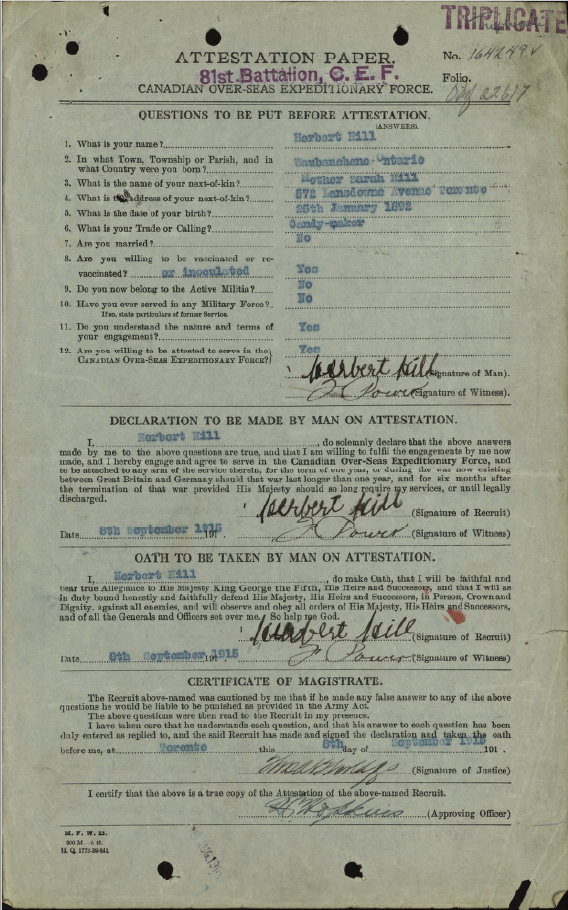 TRIPLICATE
ATTESTATION PAPER.
No. 164249
81st. Battalion, C. E. F.
Folio.
CANADIAN OVER-SEAS EXPEDITIONARY FORCE.
QUESTIONS TO BE PUT BEFORE ATTESTATION.
(ANSWERS).
1. What is your name? Herbert Hill
2. In what Town, Township or Parish, and in
what Country were you born? Waubanshene-Ontario
3. What is the name of your next-of-kin? Mother Sarah Hill
4. What is the address of your next-of-kin? 572 Lansdowne Avenue Toronto
5. What is the date of your birth? 25th January 1892
6. What is your Trade or Calling? Candy-maker
7. Are you married? No
8. Are you willing to be vaccinated or re-
vaccinated? or inoculated Yes
9. Do you now belong to the Active Militia? No
10. Have you ever served in any Military Force? No
If so, state particulars of former Service.
11. Do you understand the nature and terms of
your engagement? Yes
12. Are you willing to be attested to serve in the Yes
CANADIAN OVER-SEAS EXPEDITIONARY FORCE?
Herbert Hill (Signature of Man).
J Power (Signature of Witness).
DECLARATION TO BE MADE BY MAN ON ATTESTATION.
I, Herbert Hill, do solemnly declare that the above answers
made by me to the above questions are true, and that I am willing to fulfil the engagements by me now
made, and I hereby engage and agree to serve in the Canadian Over-Seas Expeditionary Force, and
to be attached to any arm of the service therein, for the term of one year, or during the war now existing
between Great Britain and Germany should that war last longer than one year, and for six months after
the termination of that war provided His Majesty should so long require my services, or until legally
discharged.
Herbert Hill (Signature of Recruit)
Date 8th September 1915 191 J Power (Signature of Witness)
OATH TO BE TAKEN BY MAN ON ATTESTATION.
I, Herbert Hill, do make Oath, that I will be faithful and
bear true Allegiance to His Majesty King George the Fifth, His Heirs and Successors, and that I will as
in duty bound honestly and faithfully defend His Majesty, His Heirs and Successors, in Person, Crown and
Dignity, against all enemies, and will observe and obey all orders of His Majesty, His Heirs and Successors,
and of all the Generals and Officers set over me. So help me God.
Herbert Hill (Signature of Recruit)
Date 8th September, 1915 191 J Power (Signature of Witness)
CERTIFICATE OF MAGISTRATE.
The Recruit above-named was cautioned by me that if he made any false answer to any of the above
questions he would be liable to be punished as provided in the Army Act.
The above questions were then read to the Recruit in my presence.
I have taken care that he understands each question, and that his answer to each question has been
duly entered as replied to, and the said Recruit has made and signed the declaration and taken the oath
before me, at Toronto this 8th day of September 1915 191 .
(Signature of Justice)
I certify that the above is a true copy of the Attestation of the above-named Recruit.
Hopkins (Approving Officer)
M. F. W. 23.
200 M.-6 15.
H. Q. 1772-39-841.